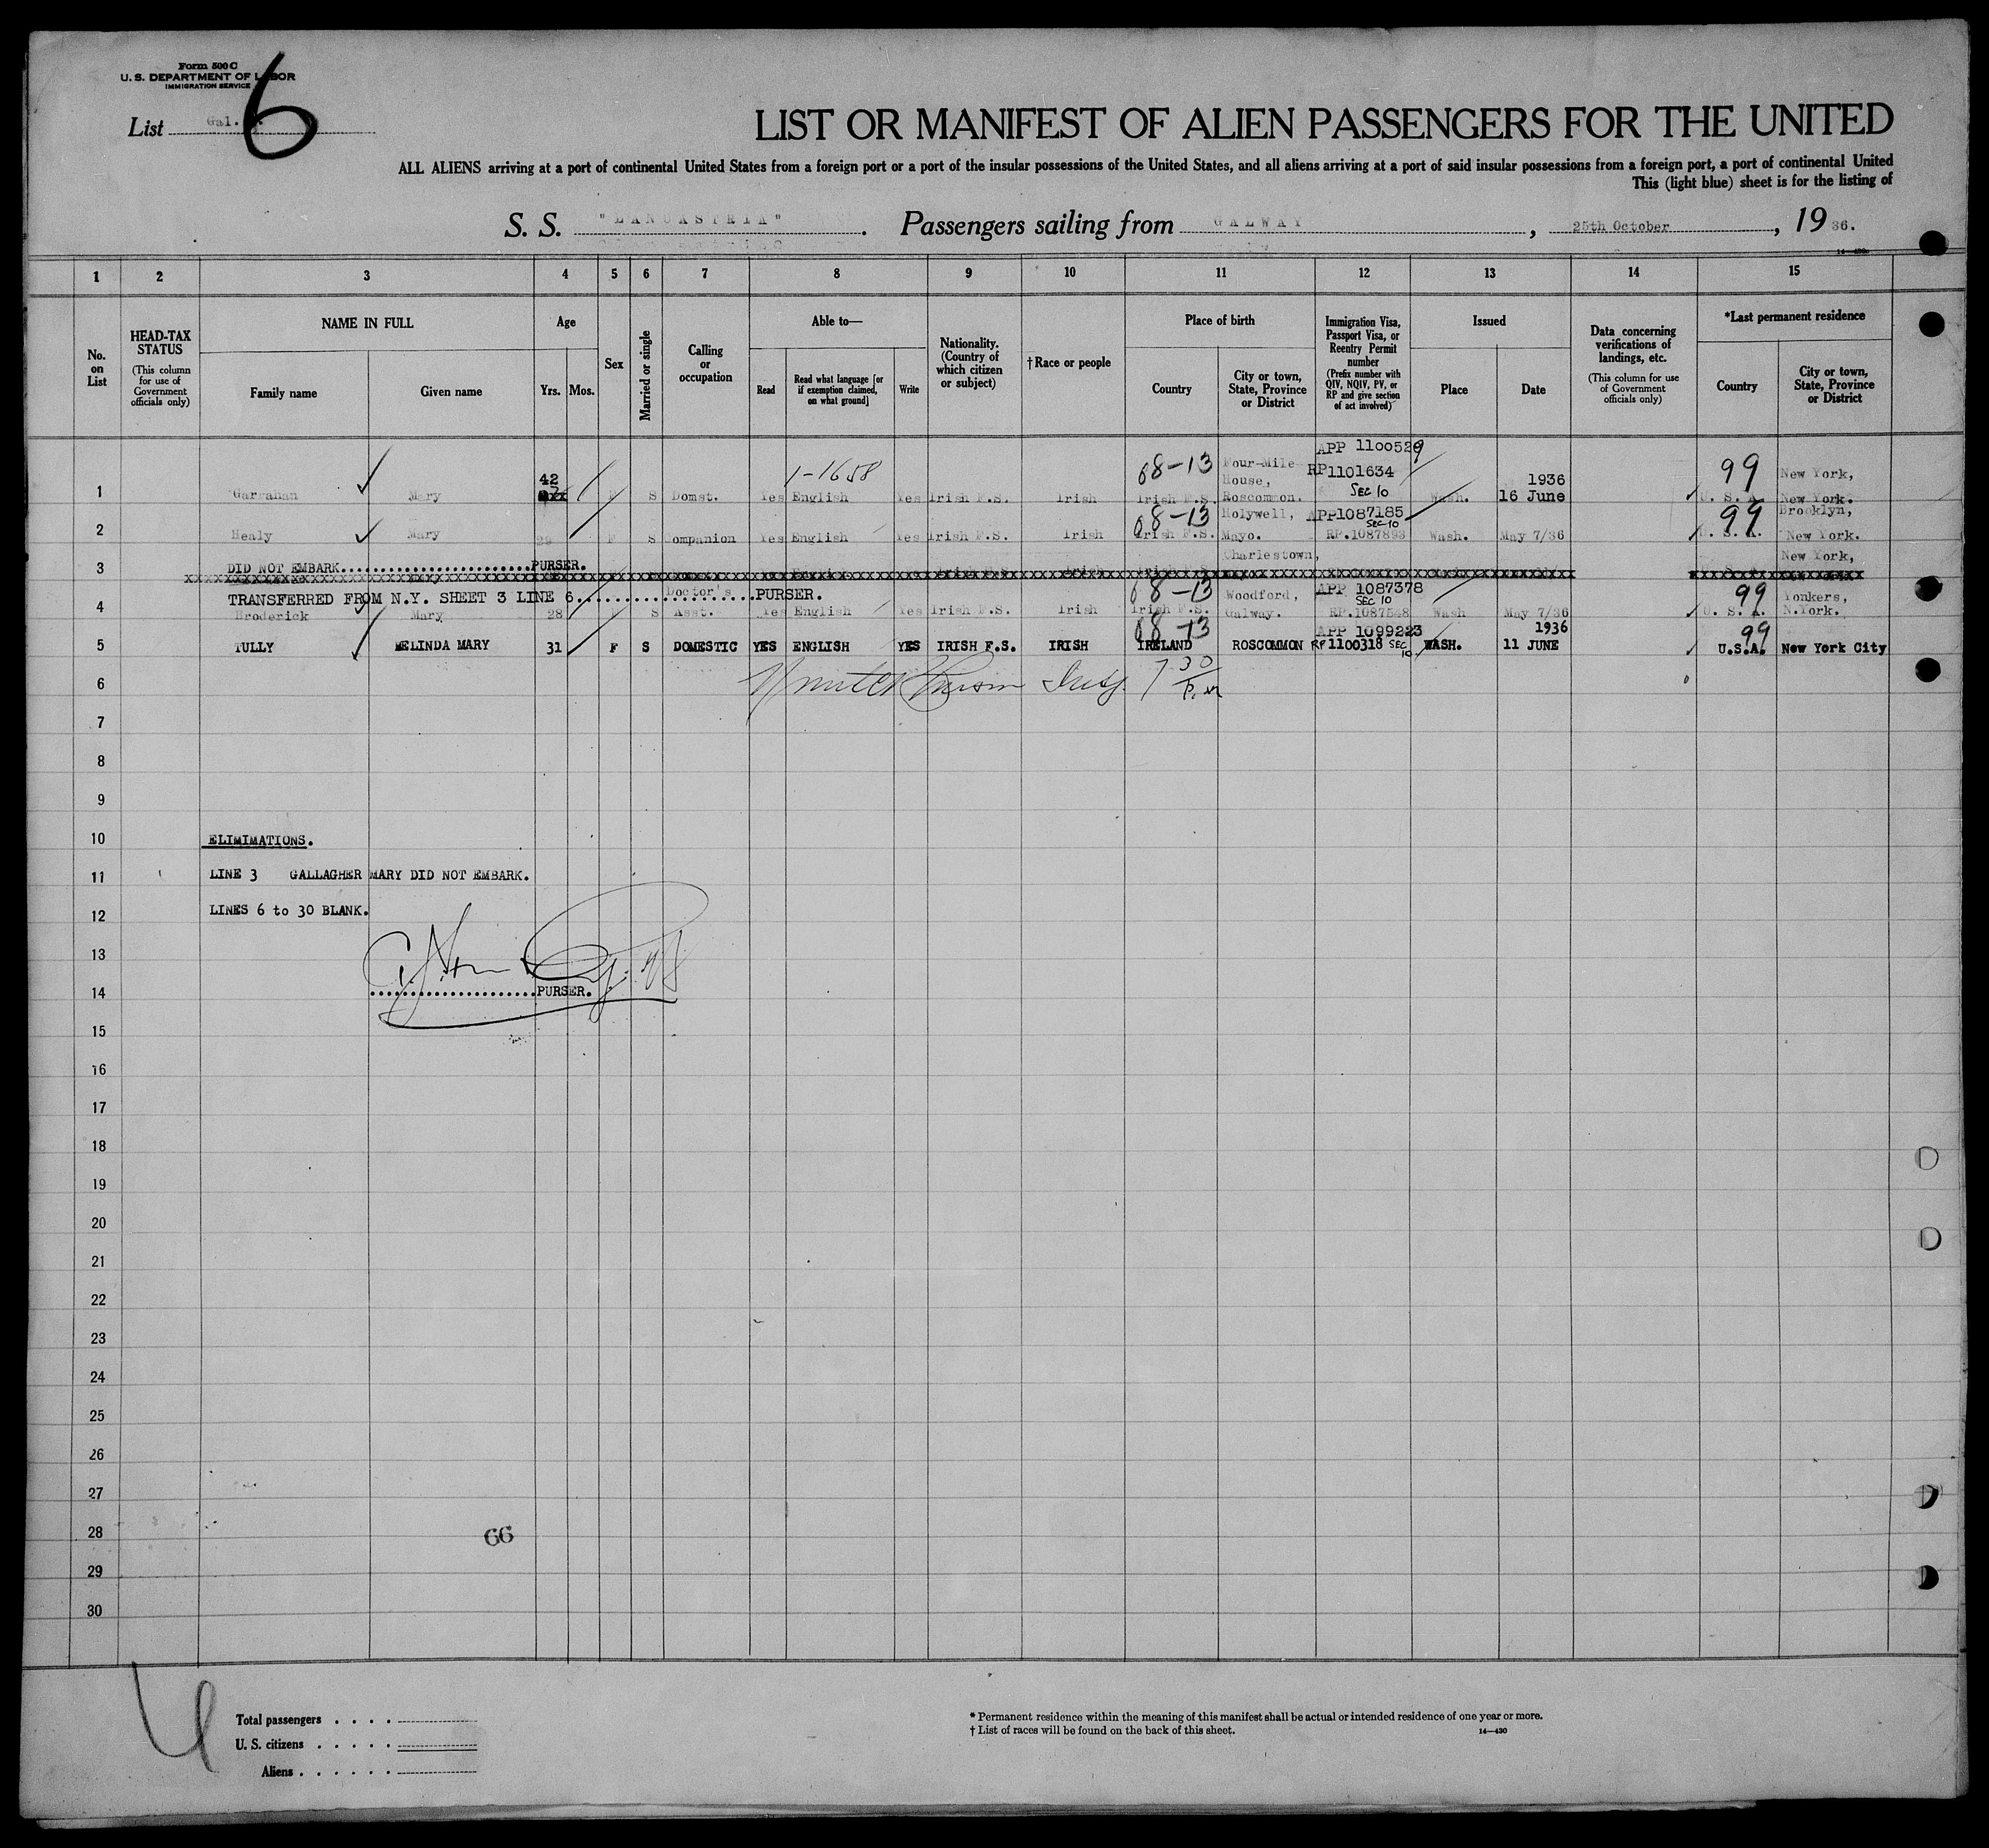 Form 500 C
U. S. DEPARTMENT OF LABOR
IMMIGRATION SERVICE
List Gal. 6
LIST OR MANIFEST OF ALIEN PASSENGERS FOR THE UNITED
ALL ALIENS arriving at a port of continental United States from a foreign port or a port of the insular possessions of the United States, and all aliens arriving at a port of said insular possessions from a foreign port, a port of continental United
This (light blue) sheet is for the listing of
S. S. "LANCASTRIA". Passengers sailing from GALWAY, 25th October, 1936.
14-430
1 2 3 4 5 6 7 8 9 10 11 12 13 14 15
No. on List
HEAD-TAX STATUS (This column for use of Government officials only)
NAME IN FULL
Family name Given name
Age
Yrs. Mos.
Sex
Married or single
Calling or occupation
Able to—
Read Read what language [or if exemption claimed, on what ground] Write
Nationality. (Country of which citizen or subject)
†Race or people
Place of birth
Country City or town, State, Province or District
Immigration Visa, Passport Visa, or Reentry Permit number (Prefix number with QIV, NQIV, PV, or RP and give section of act involved)
Issued
Place Date
Data concerning verifications of landings, etc. (This column for use of Government officials only)
*Last permanent residence
Country City or town, State, Province or District
APP 1100529
42 1-1658 08-13 Four-Mile House, RP1101634 SEC 10 1936 99 New York,
1 Garrahan Mary F S Domst. Yes English Yes Irish F.S. Irish Irish F.S. Roscommon. Wash. 16 June U. S. A. New York.
08-13 Holywell, APP1087185 SEC 10 99 Brooklyn,
2 Healy Mary 29 F S Companion Yes English Yes Irish F.S. Irish Irish F.S. Mayo. RP.1087893 Wash. May 7/36 U. S. A. New York.
Charlestown, New York,
3 DID NOT EMBARK....................PURSER.
TRANSFERRED FROM N.Y. SHEET 3 LINE 6....................PURSER.
Doctor's 08-13 Woodford, APP 1087378 SEC 10 99 Yonkers,
4 Broderick Mary 28 F S Asst. Yes English Yes Irish F.S. Irish Irish F.S. Galway. RP.1087548 Wash May 7/36 U. S. A. N.York.
08-13 APP 1099223 1936 99
5 TULLY MELINDA MARY 31 F S DOMESTIC YES ENGLISH YES IRISH F.S. IRISH IRELAND ROSCOMMON RP1100318 SEC 10 WASH. 11 JUNE U.S.A. New York City
6 Insp. 7 30 P.m
7
8
9
10 ELIMIMATIONS.
11 LINE 3 GALLAGHER MARY DID NOT EMBARK.
12 LINES 6 to 30 BLANK.
13
14 ....................PURSER.
15
16
17
18
19
20
21
22
23
24
25
26
27
28 66
29
30
Total passengers . . . .
U. S. citizens . . . . .
Aliens . . . . . .
* Permanent residence within the meaning of this manifest shall be actual or intended residence of one year or more.
† List of races will be found on the back of this sheet.
14-430